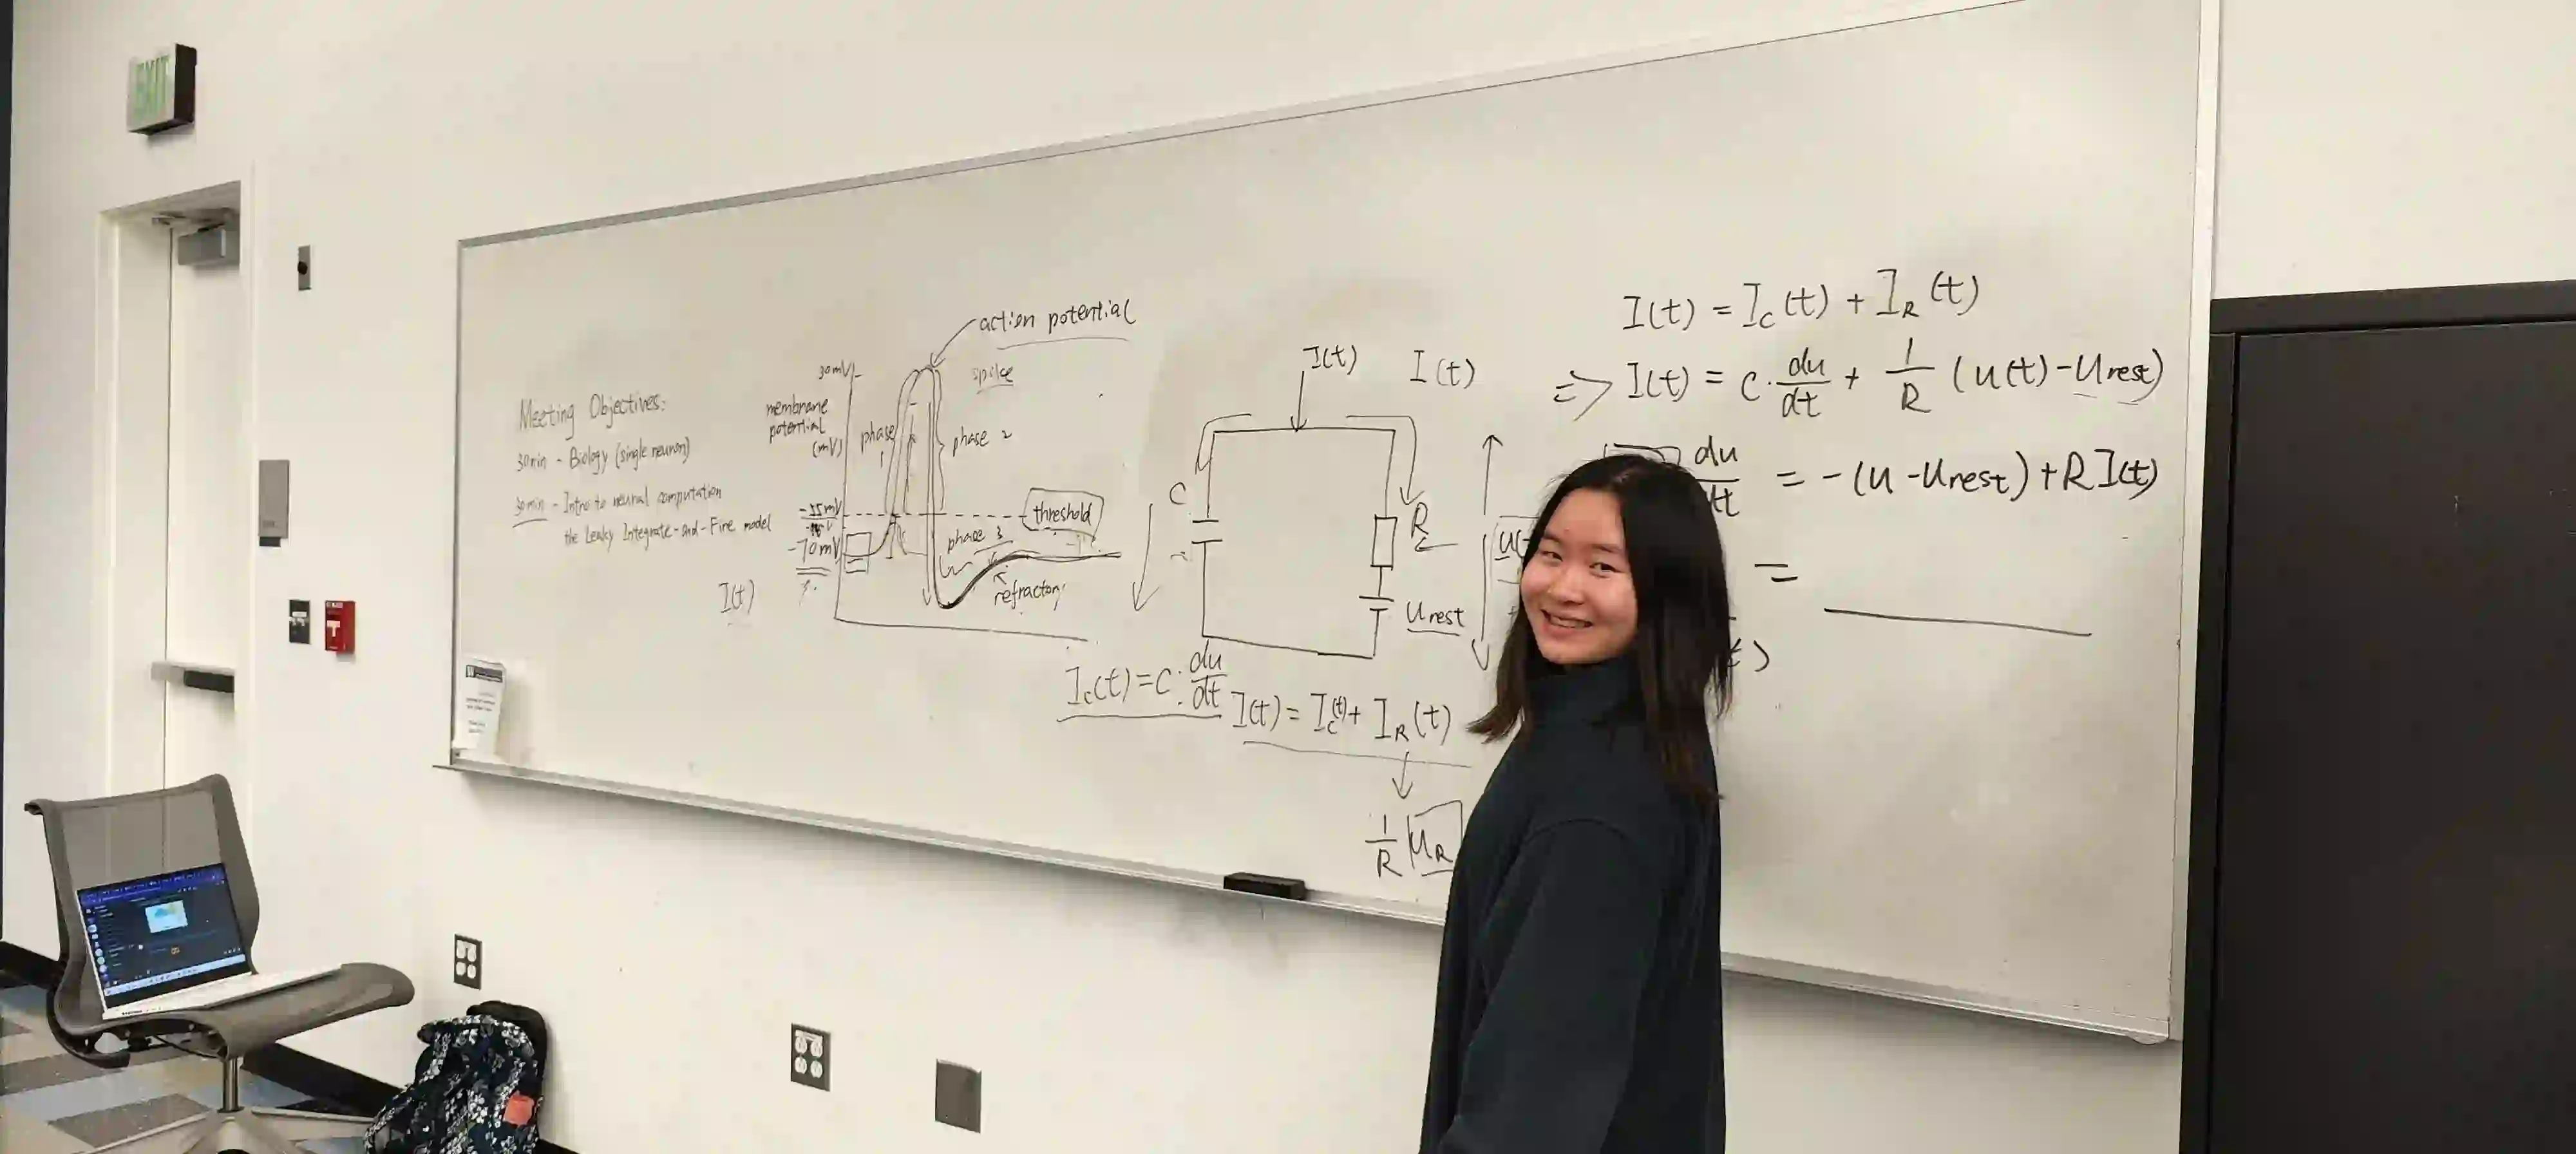 EXIT
Meeting Objectives:
30min - Biology (single neuron)
30min - Intro to neural computation
the Leaky Integrate-and-Fire model
action potential
spike
30mV
membrane
potential
(mV)
phase
1
phase 2
-55mV
-70mV
threshold
phase 3
refractory
I(t)
I(t)
I(t)
C
R
Urest
u(
Ic(t) = C · du/dt
I(t) = Ic(t) + IR(t)
1/R uR
I(t) = Ic(t) + IR(t)
=> I(t) = C · du/dt + 1/R (u(t) - Urest)
du/dt = -(u - Urest) + R I(t)
=